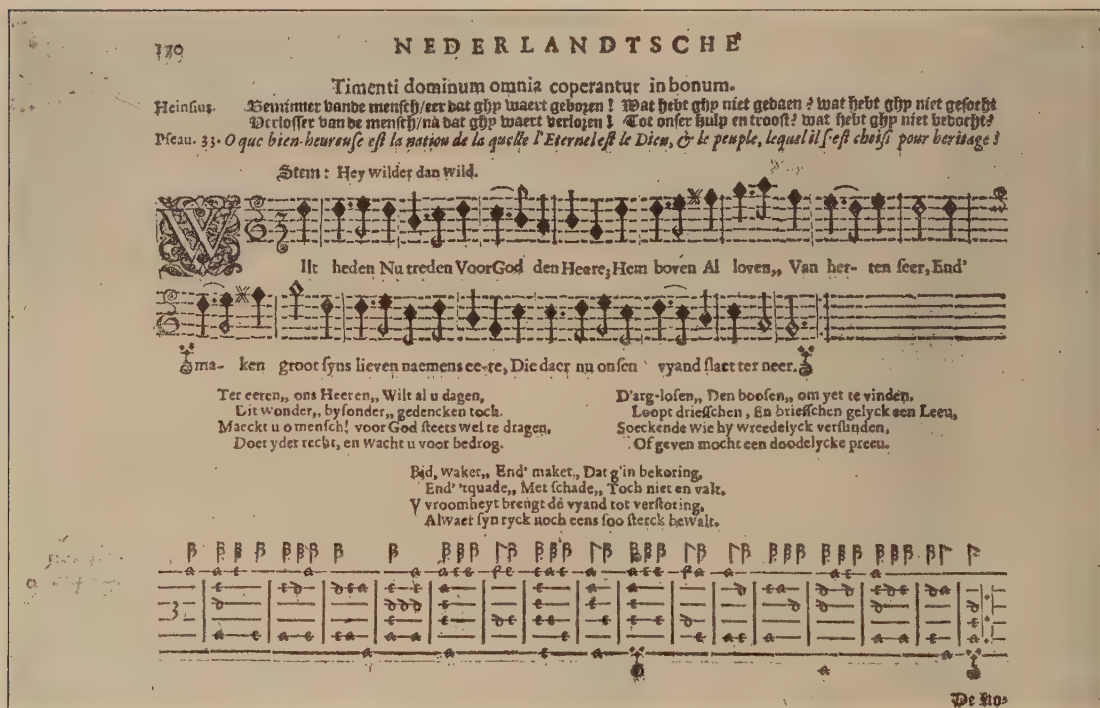 170
NEDERLANDTSCHE
Timenti dominum omnia coperantur in bonum.
Heinsius. Beminner vande mensch/eer dat ghy waert geboren! Wat hebt ghy niet gedaen? wat hebt ghy niet gesocht
Verlosser van de mensch/nā dat ghy waert verloren! Tot onser hulp en troost? wat hebt ghy niet bedocht?
Pseau. 33. O que bien-heureuse est la nation de la quelle l'Eternel est le Dieu, & le peuple, lequel il s'est choisi pour heritage!
Stem: Hey wilder dan wild.
W Ilt heden Nu treden Voor God den Heere; Hem boven Al loven,, Van her- ten seer, End'
ma- ken groot syns lieven naemens ee-re, Die daer nu onsen vyand slaet ter neer.
Ter eeren,, ons Heeren,, Wilt al u dagen,
Dit wonder,, bysonder,, gedencken toch.
Maeckt u o mensch! voor God steets wel te dragen,
Doet yder recht, en wacht u voor bedrog.
D'arg-losen,, Den boosen,, om yet te vinden,
Loopt driesschen, En briesschen gelyck een Leeu,
Soeckende wie hy wreedelyck verslinden,
Of geven mocht een doodelycke preeu.
Bid, waket,, End' maket,, Dat g'in bekoring,
End' 'tquade,, Met schade,, Toch niet en valt.
V vroomheyt brengt dē vyand tot verstoring,
Alwaer syn ryck noch eens soo sterck bewalt.
3
De No-